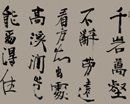 千岩萬壑
不辭勞遠
看方知出處
高溪澗豈
能留得住